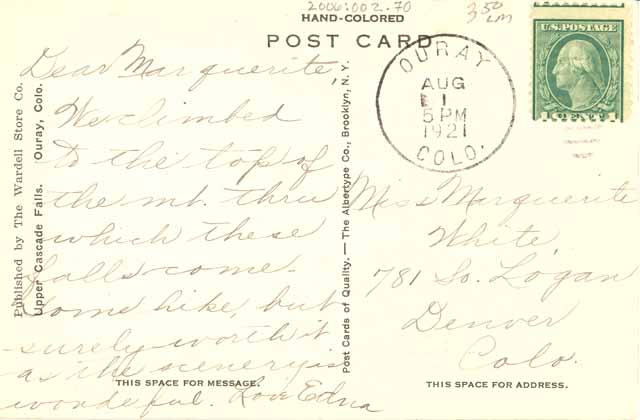 2006:002.70
3 50
LM
HAND-COLORED
POST CARD
OURAY
AUG
1
5 PM
1921
COLO.
U.S. POSTAGE
1 CENT 1
Published by The Wardell Store Co.
Upper Cascade Falls. Ouray, Colo.
Dear Marguerite,
We climbed
to the top of
the mt. thru
which these
falls come.
Some hike, but
surely worth it
as the scenery is
wonderful. Love Edna
THIS SPACE FOR MESSAGE.
Post Cards of Quality. — The Albertype Co., Brooklyn, N. Y.
Miss Marguerite
White,
781 So. Logan
Denver
Colo.
THIS SPACE FOR ADDRESS.